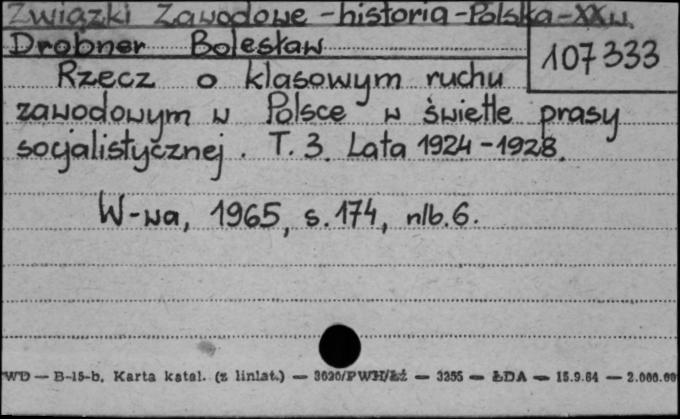 Związki Zawodowe - historia - Polska - XX w.
Drobner Bolesław
107 333
Rzecz o klasowym ruchu
zawodowym w Polsce w świetle prasy
socjalistycznej. T. 3. Lata 1924 - 1928.
W-wa, 1965, s. 174, nlb. 6.
WD — B-15-b, Karta katal. (z liniat.) — 3620/PWH/Łź — 3255 — ŁDA — 15.9.64 — 2.000.00